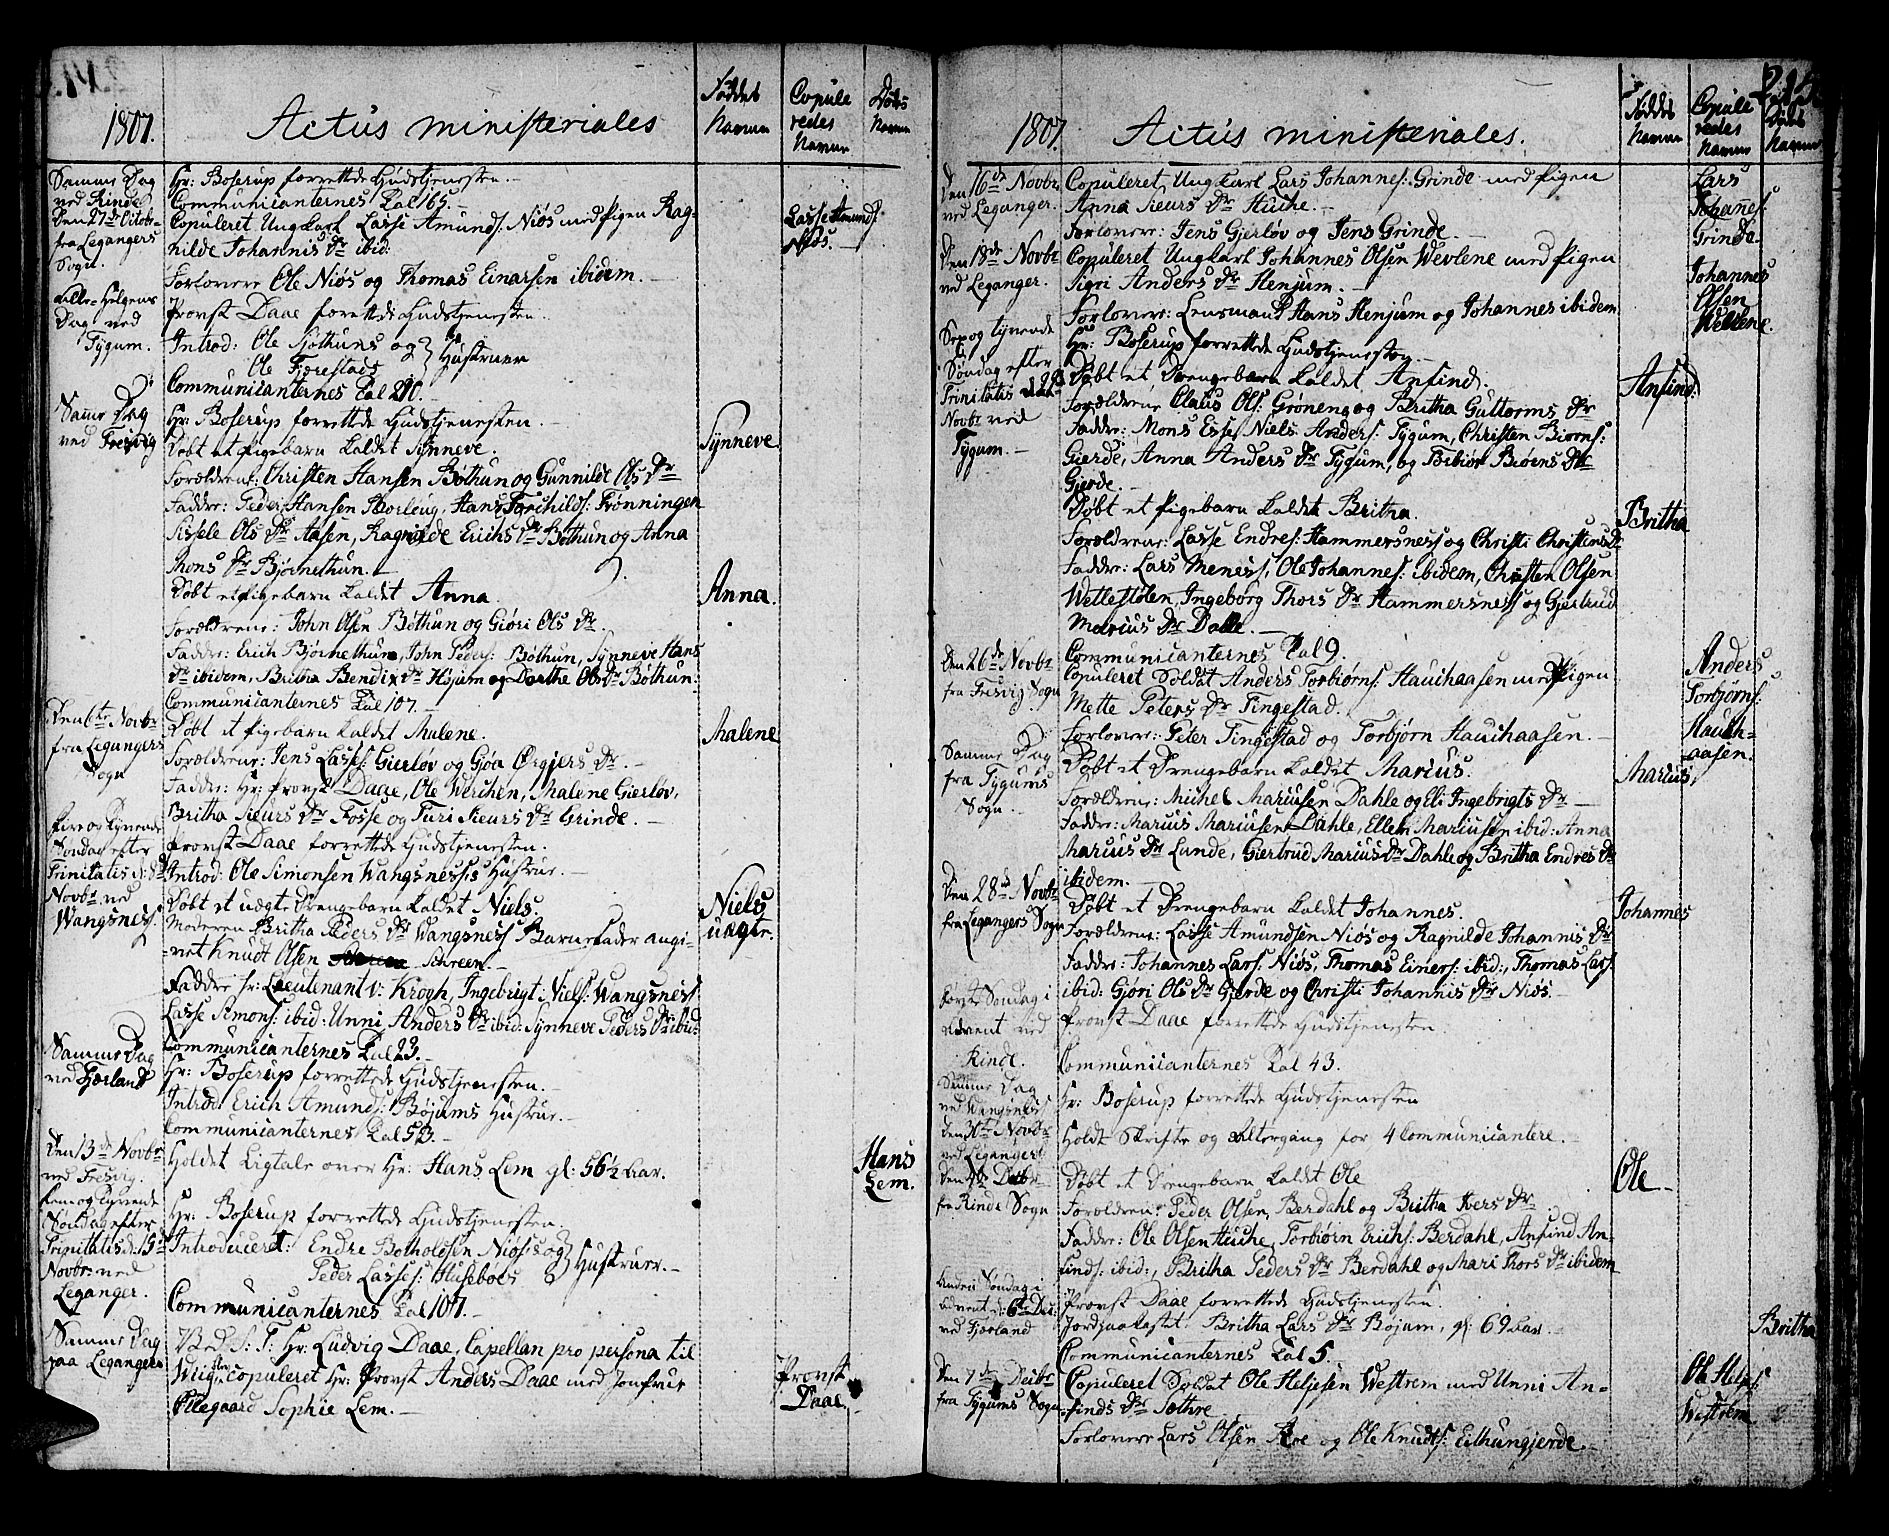 1807.
Actus ministeriales
Føddes Navne
Copuleredes Navne
Dødes Navne
Samme Dag ved Rinde
Hr: Boserup forrettede Gudstjenesten.
Communicanternes Tal 165.
Den 27de Octobr. fra Legangers Sogn.
Copuleret Ungkarl Lasse Amunds: Niøs med Pigen Rag-
nilde Johannis Dr ibid:
Lasse Amunds: Niøs.
Forlovere Ole Niøs og Thomas Einarsen ibidem.
Alle-Helgens Dag ved Tygum.
Provst Daae forrettede Gudstjenesten.
Introd: Ole Sjøthuns og
Ole Fjærestads
Hustruer
Communicanternes Tal 210.
Samme Dag ved Fresvig
Hr: Boserup forrettede Gudstjenesten.
Døbt et Pigebarn kaldet Synneve.
Synneve
Forældrene: Christen Hansen Bøthun og Gunnilde Ols Dr
Faddre: Peder Hansen Horleng, Hans Torchilds: Frønningen
Sissele Ols Dr Aasen, Ragnilde Erichs Dr Bøthun og Anna
Thons Dr Bjørnethun.
Døbt et Pigebarn kaldet Anna.
Anna.
Forældrene: John Olsen Bøthun og Gjøri Ols Dr.
Faddre: Erich Bjørnethun, John Peders: Bøthun, Synneve Hans
Dr ibidem, Britha Bendix Dr Højum og Dorthe Ols Dr Bøthun.
Communicanternes Tal 107.
Den 6te Novbr. fra Legangers Sogn
Døbt et Pigebarn kaldet Malene.
Malene
Forældrene: Jens Lasses: Gierløv og Gjøa Ørgjers Dr.
Faddre: Hr: Provst Daae, Ole Werchen, Malene Gierløv,
Britha Siurs Dr Fosse og Turi Siurs Dr Grinde.
Fire og Tyvende Søndag efter Trinitatis d: 8de Novbr ved Wangsness.
Provst Daae forrettede Gudstjenesten.
Introd: Ole Simonsen Wangsness's Hustrue.
Døbt et uægte Drengebarn kaldet Niels.
Niels uægte.
Moderen Britha Peders Dr Wangsness Barnefader angi-
-vet Knudt Olsen Schreen.
Faddre Hr: Lieutenant v: Krogh, Ingebrigt Niels: Wangsness
Lasse Simons: ibid: Unni Anders Dr ibid: Synneve Peders Dr ibid:
Communicanternes Tal 23.
Samme Dag ved Fjærland
Hr: Boserup forrettede Gudstjenesten.
Introd: Erich Amunds: Bøjums Hustrue.
Communicanternes Tal 53.
Den 13de Novbr ved Fresvig.
Holdet Ligtale over Hr: Hans Lem gl: 56½ Aar.
Hans Lem.
Fem og Tyvende Søndag efter Trinitatis d: 15de Novbr: ved Leganger.
Hr: Boserup forrettede Gudstjenesten.
Introduceret: Endre Botholdsen Niøsis og
Peder Lasses: Husebøes
Hustruer.
Communicanternes Tal 107.
Samme Dag paa Leganger
Hr: Ludvig Daae, Capellan pro persona til
Wiig copuleret Hr: Provst Anders Daae med Jomfrue
Ellegaard Sophie Lem.
Provst Daae.
1807.
Actus ministeriales.
Føddes Navne
Copuleredes Navne
Dødes Navne
Den 16de Novbr. ved Leganger.
Copuleret Ungkarl Lars Johannes: Grinde med Pigen
Anna Siurs Dr Huche.
Lars Johanes: Grinde.
Forlovere: Jens Gjerløv og Jens Grinde.
Den 18de Novbr ved Leganger.
Copuleret Ungkarl Johannes Olsen Wevlene med Pigen
Sigri Anders Dr Henjum.
Johannes Olsen Wevlene.
Forlovere: Lensmand Hans Henjum og Johannes ibidem
Sex og tyvende Søndag efter Trinitatis Novbr ved Tygum.
Hr: Boserup forrettede Gudstjenesten.
Døbt et Drengebarn kaldet Ansind.
Ansind.
Forældrene Claus Ols: Grøneng og Britha Guttorms Dr
Faddre: Mons Esse, Niels Anders: Tygum, Christen Biørns:
Gierde, Anna Anders Dr Tygum, og Torbiør Biørns Dr
Gjerde.
Døbt et Pigebarn kaldet Britha.
Britha
Forældrene: Lasse Endres: Hammersness og Christi Christens Dr
Faddre: Lars Meness, Ole Johannes: ibidem, Christen Olsen
Wettestølen, Ingeborg Thors Dr Hammersness og Gjertrud
Marius Dr Dalle.
Communicanternes Tal 9.
Den 26de Novbr fra Fresvig Sogn
Copuleret Soldat Anders Torbiørns: Hauchaasen med Pigen
Mette Peters Dr Tingestad.
Anders Torbjørns: Hauchaasen.
Forlovere: Peter Tingestad og Torbjørn Hauchaasen.
Samme Dag fra Tygums Sogn.
Døbt et Drengebarn kaldet Marius.
Marius.
Forældrene: Michel Mariusen Dahle og Eli Ingebrigts Dr
Faddre: Marius Mariusen Dahle, Ellen Mariusen ibid: Anna
Marius Dr Lunde, Giertrud Marius Dr Dahle og Britha Endres Dr
ibidem.
Den 28de Novbr fra Legangers Sogn
Døbt et Drengebarn kaldet Johannes.
Johannes
Forældrene: Lasse Amundsen Niøs og Ragnilde Johannis Dr
Faddre: Johannes Lars: Niøs, Thomas Einers: ibid:, Thomas Lars:
ibid: Gjøri Ols Dr Gjerde og Christi Johannis Dr Niøs.
Første Søndag i Advent ved Rinde.
Provst Daae forrettede Gudstjenesten.
Communicanternes Tal 43.
Samme Dag ved Wangsness
Hr: Boserup forrettede Gudstjenesten
Den 30te Novbr ved Leganger
Holdt Skrifte og Altergang for 4 Communicantere.
fra Rinde Sogn
Døbt et Drengebarn kaldet Ole
Ole
Forældrene: Peder Olsen Berdahl og Britha Ivers Dr
Faddre: Ole Olsen Huche, Torbiørn Erichs: Berdahl, Ansind An-
sinds: ibid:, Britha Peders Dr Berdahl og Mari Thors Dr ibidem
Anden Søndag i Advent d: 6te Dec: ved Fjærland
Provst Daae forrettede Gudstjenesten.
Jordpaakastet Britha Lars Dr Bøjum, gl: 69 Aar.
Britha
Communicanternes Tal 5.
Den 7de Decbr fra Tygums Sogn
Copuleret Soldat Ole Heljesen Westrem med Unni An-
sinds Dr Sæthre
Ole Heljes: Westrem
Forlovere Lars Olsen Røe og Ole Knudts: Eithungjerde.